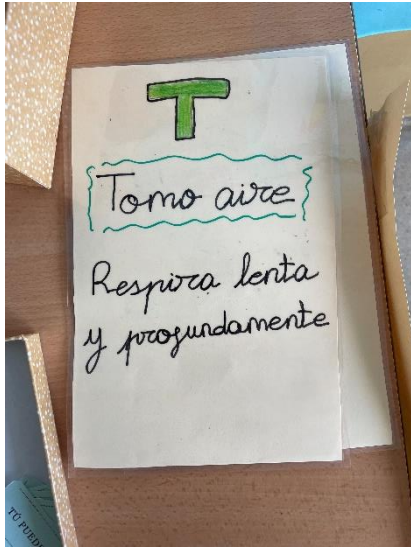 T
Tomo aire
Respira lenta
y profundamente
TÚ PUED